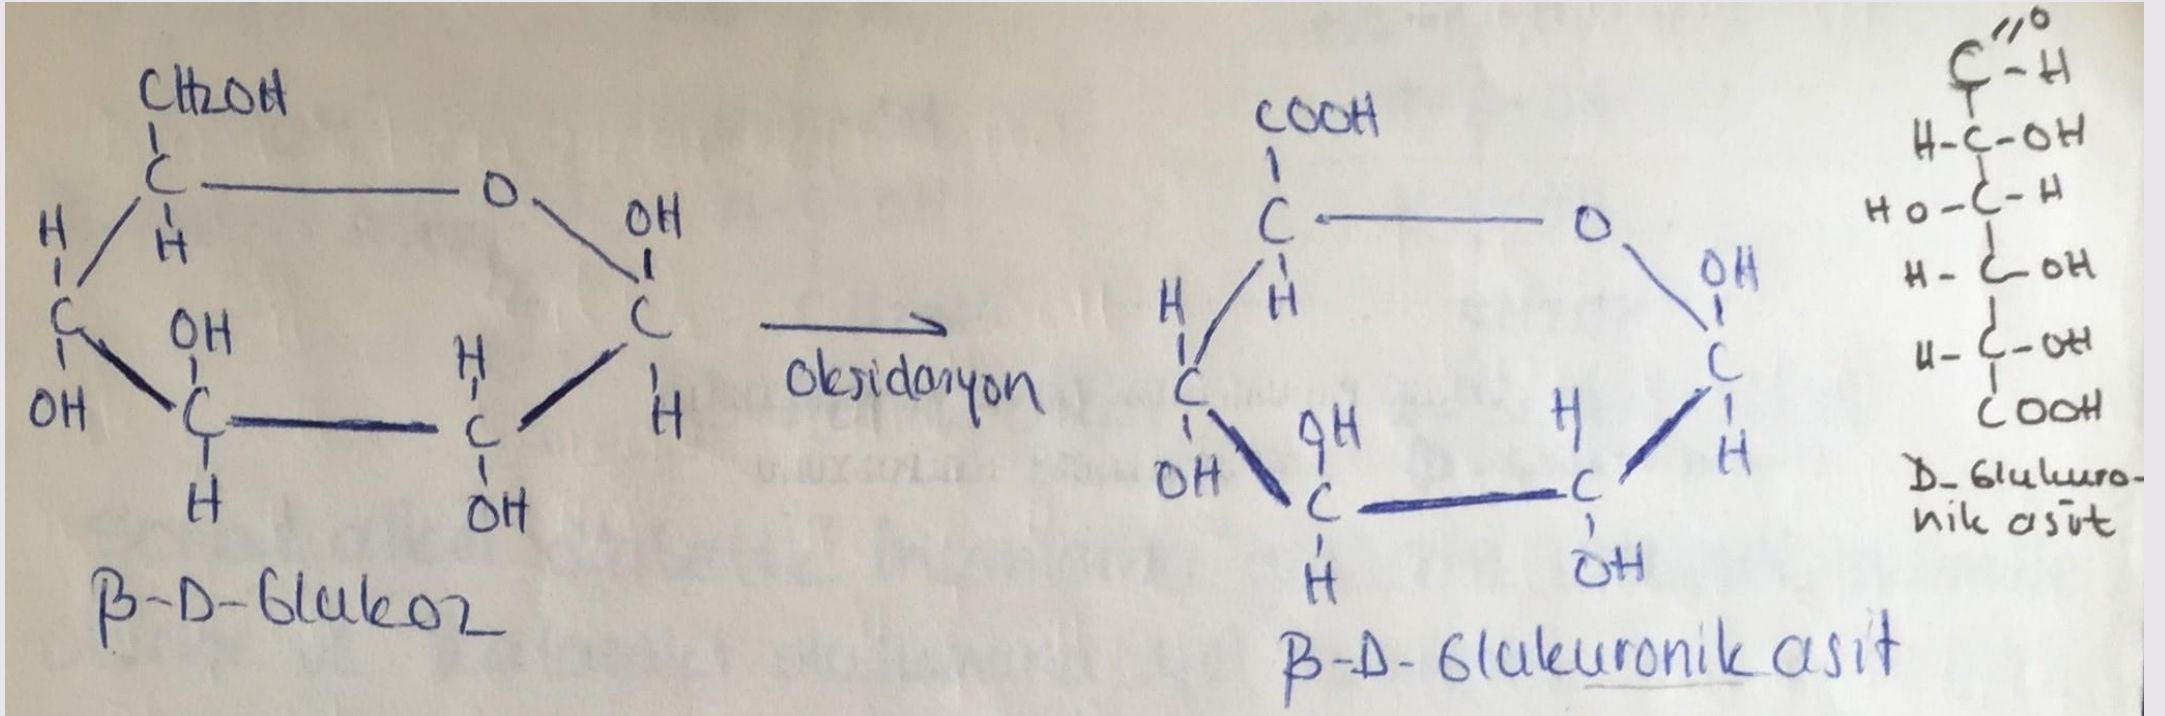 CH2OH
C O
H H OH
C OH H C
OH C C H
H OH
β-D-Glukoz
Oksidasyon
COOH
C O
H H OH
C OH H C
OH C C H
H OH
β-D-Glukuronik asit
O
C-H
H-C-OH
HO-C-H
H-C-OH
H-C-OH
COOH
D-Glukuro-
nik asit